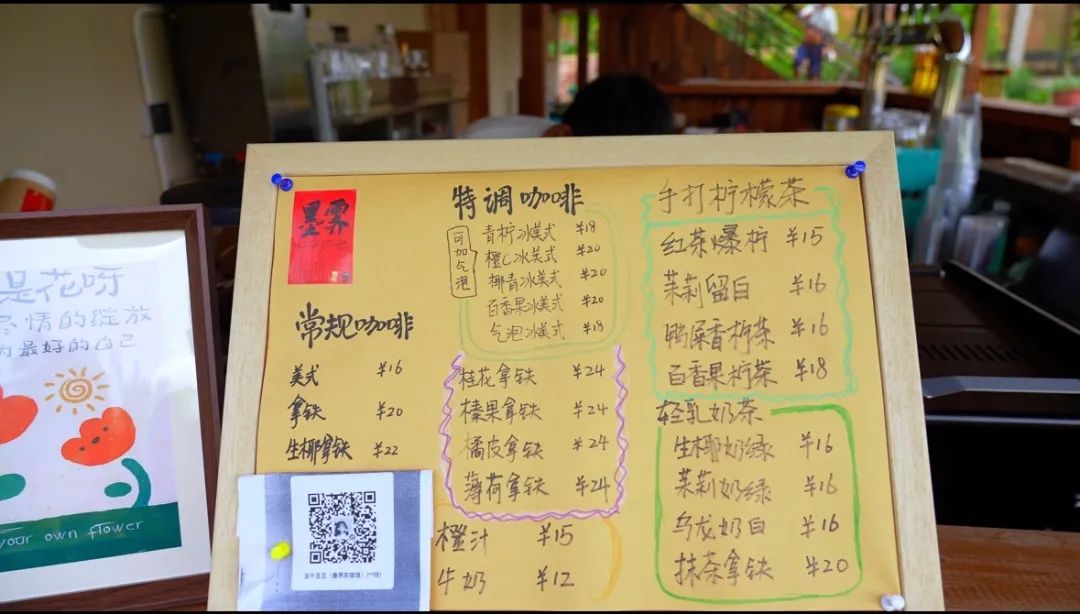 是花呀
尽情的绽放
为最好的自己
your own flower
墨霁
常规咖啡
美式 ¥16
拿铁 ¥20
生椰拿铁 ¥22
特调咖啡
可加气泡
青柠冰美式 ¥18
橙C冰美式 ¥20
椰青冰美式 ¥20
百香果冰美式 ¥20
气泡冰美式 ¥18
桂花拿铁 ¥24
榛果拿铁 ¥24
橘皮拿铁 ¥24
薄荷拿铁 ¥24
橙汁 ¥15
牛奶 ¥12
手打柠檬茶
红茶爆柠 ¥15
茉莉留白 ¥16
鸭屎香柠茶 ¥16
百香果柠茶 ¥18
轻乳奶茶
生椰奶绿 ¥16
茉莉奶绿 ¥16
乌龙奶白 ¥16
抹茶拿铁 ¥20